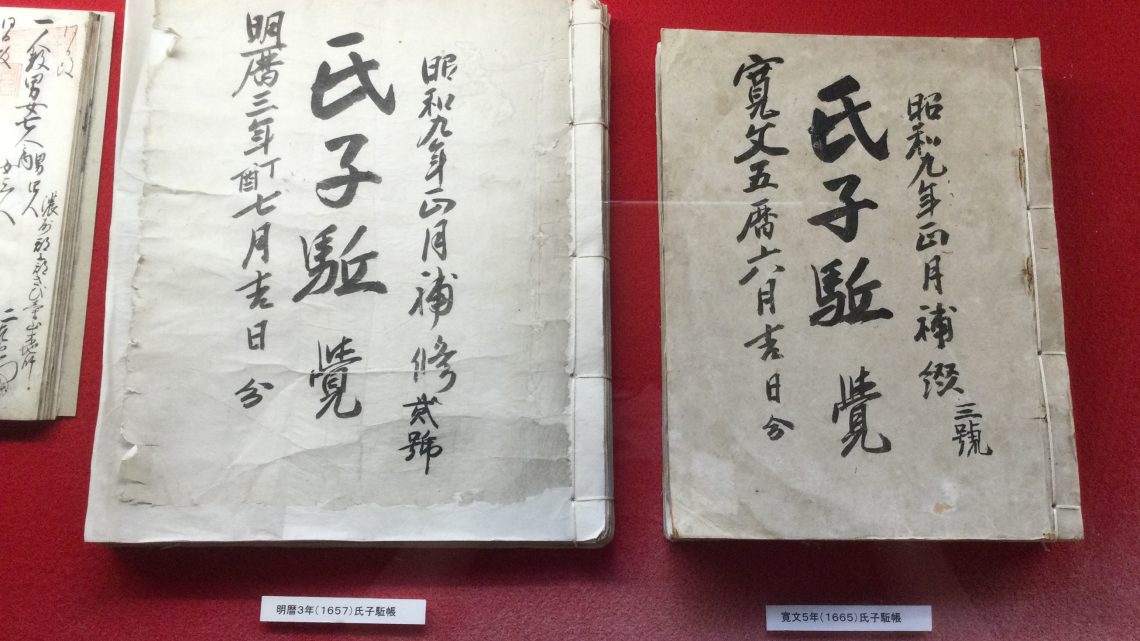 昭和九年正月補修貳號
氏子駈覺
明暦三年丁酉七月吉日分
明暦3年(1657)氏子駈帳
昭和九年正月補綴三號
氏子駈覺
寛文五暦六月吉日分
寛文5年(1665)氏子駈帳